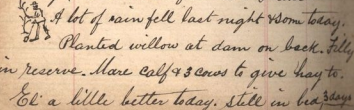 A lot of rain fell last night & some today.
Planted willow at dam on back. Filly
in reserve. Mare calf & 3 cows to give hay to.
Eli a little better today. still in bed 3 days